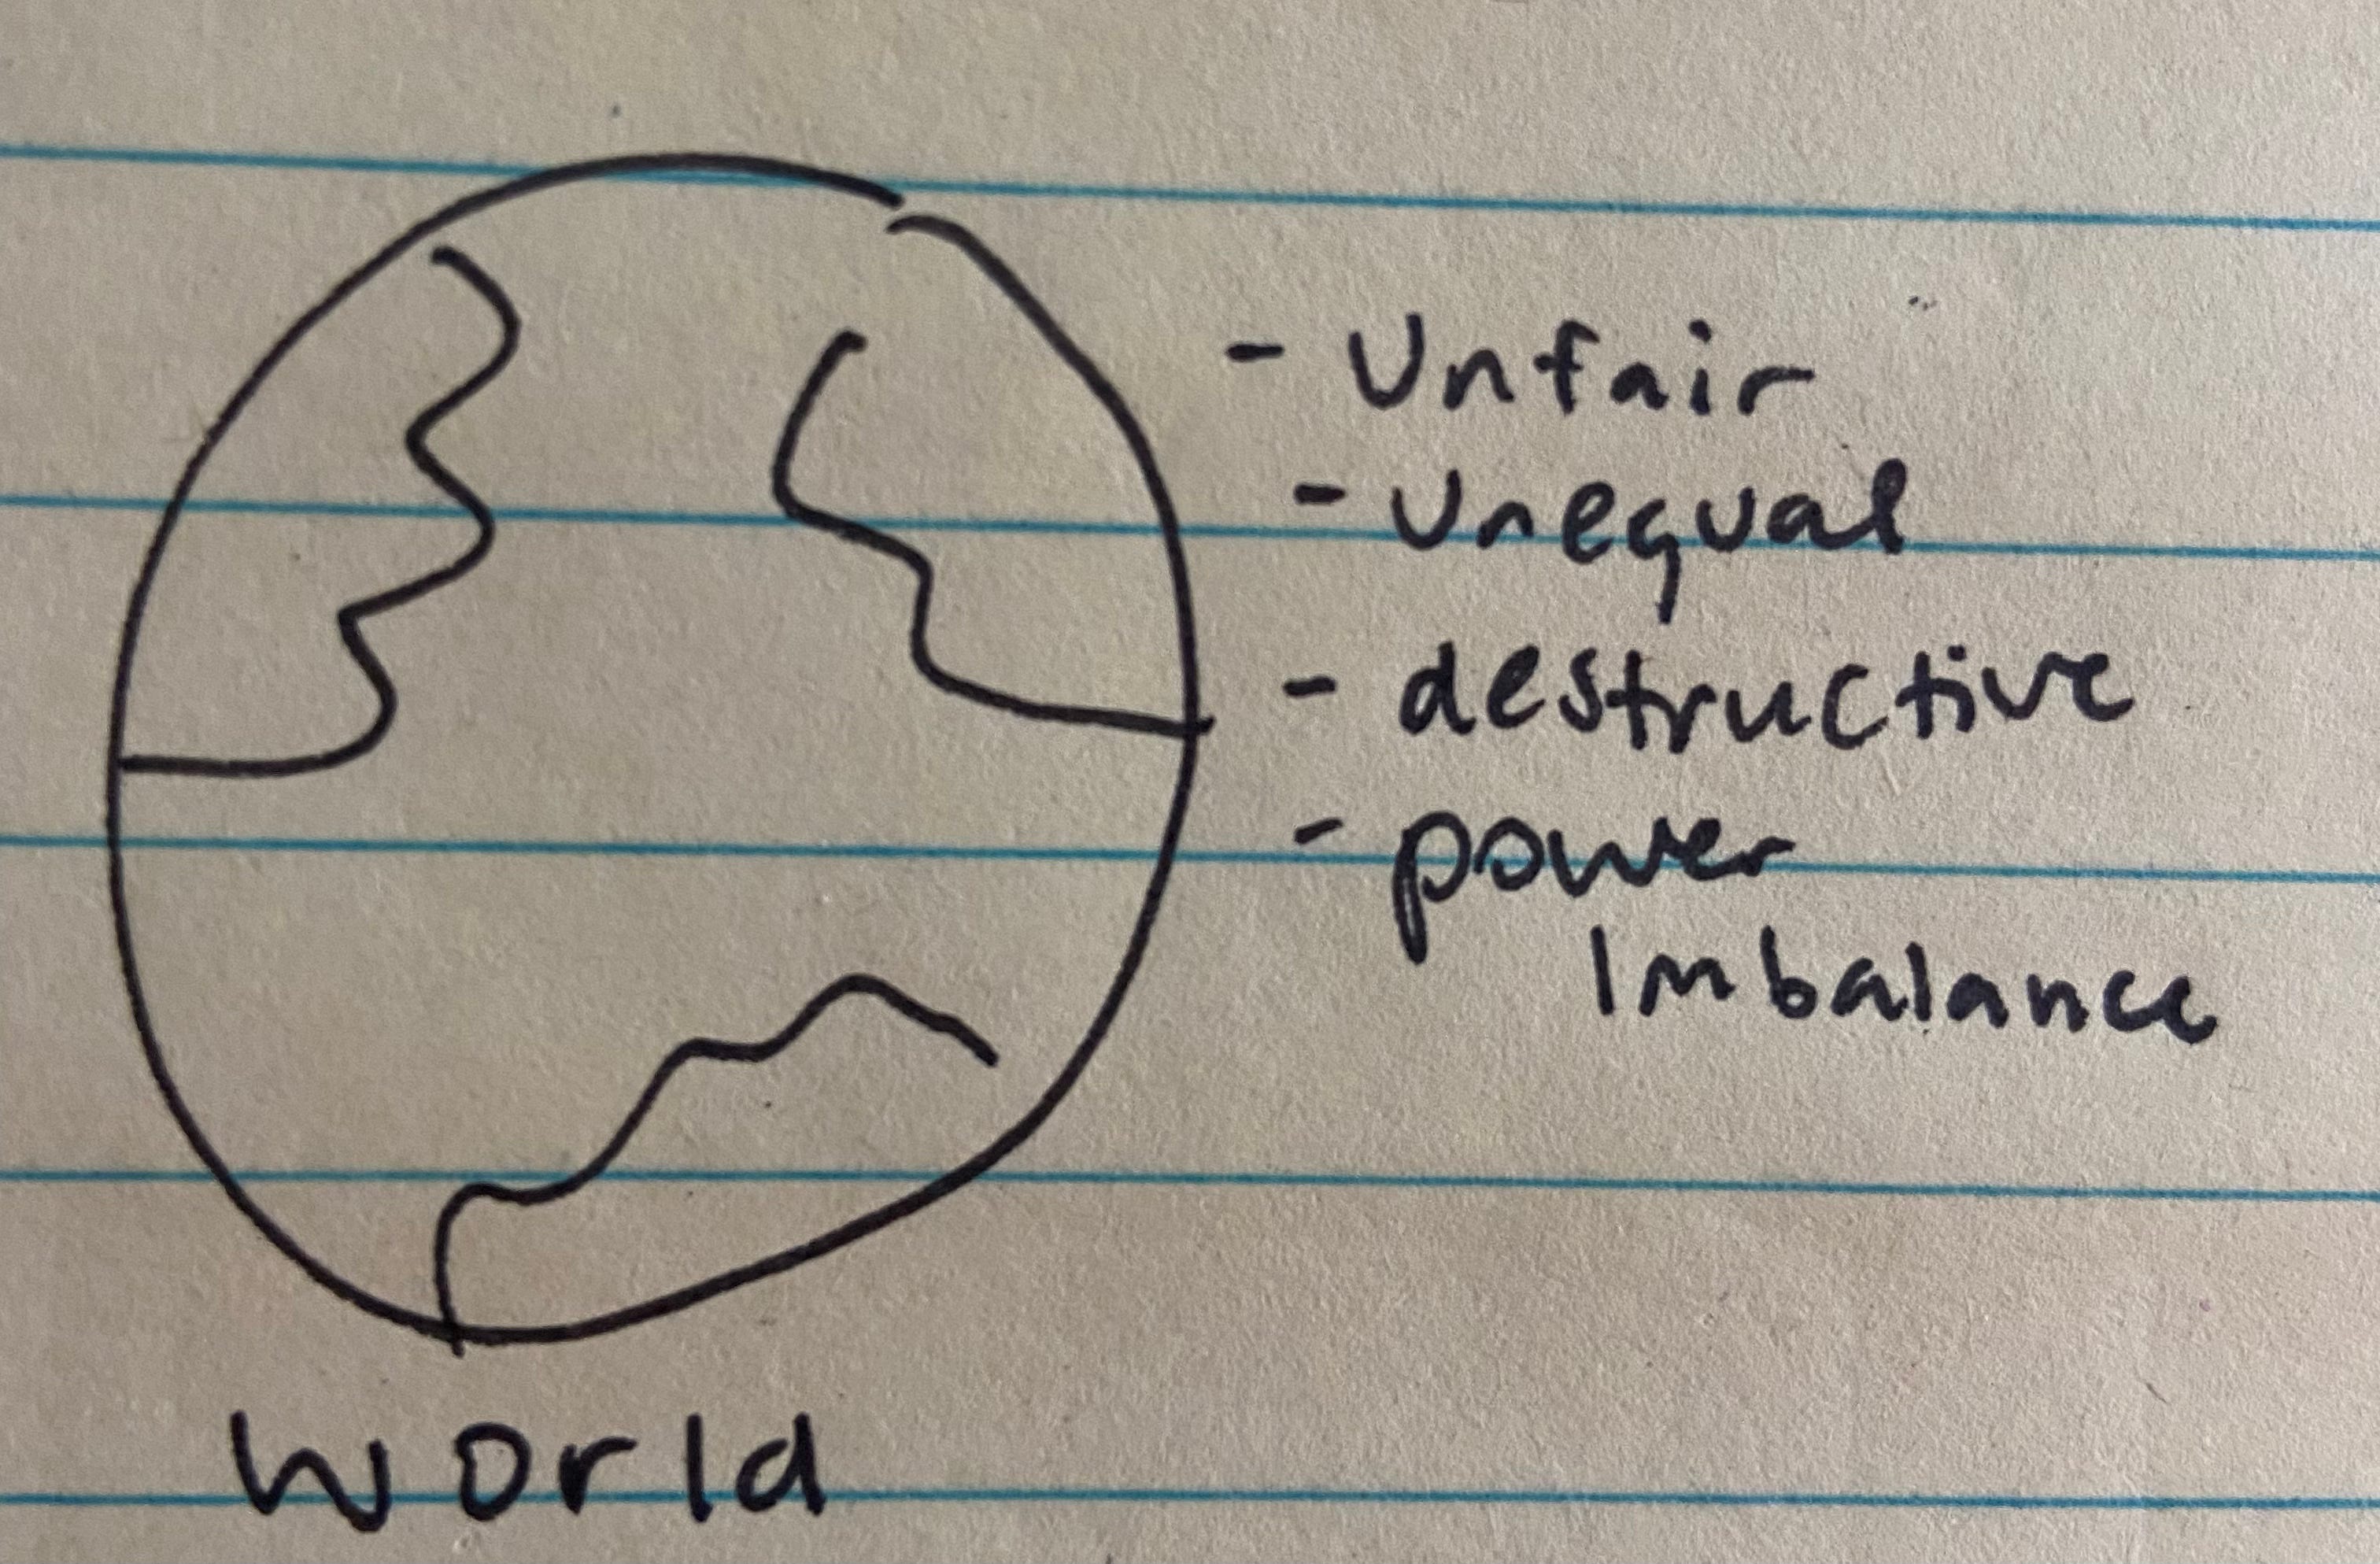 - Unfair
- Unequal
- destructive
- power
Imbalance
World